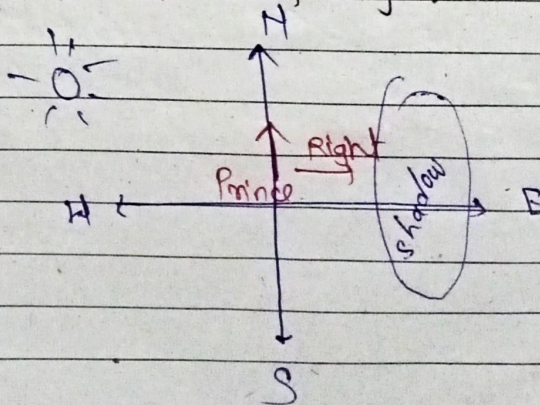 N
Right
Prince
W
E
shadow
S